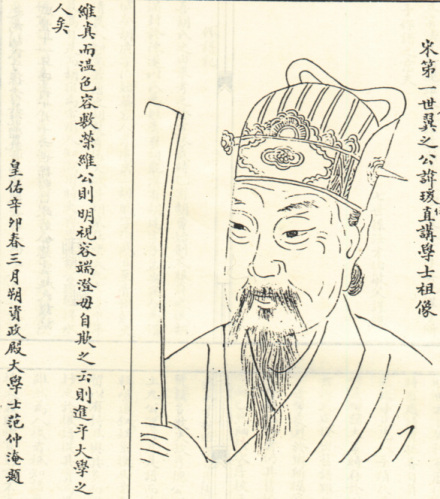 宋第一世翼之公諱瑗直講學士祖像
維真而溫色容敷榮維公則明視容端澄毋自欺之云則進乎大學之
人矣
皇佑辛卯春三月朔資政殿大學士范仲淹題